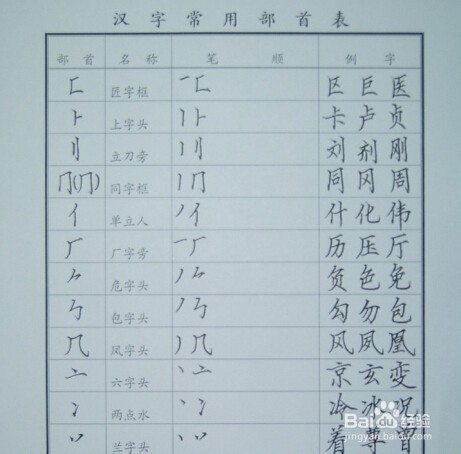 汉字常用部首表
部首 名称 笔顺 例字
匚 匠字框 一匚 区巨医
⺊ 上字头 丨⺊ 卡卢贞
刂 立刀旁 丨刂 刘剂刚
冂(⺆) 同字框 丨冂 同冈周
亻 单立人 丿亻 什化伟
厂 厂字旁 一厂 历压厅
⺈ 危字头 丿⺈ 负色免
勹 包字头 丿勹 勾勿包
几 凤字头 丿几 风夙凰
亠 六字头 丶亠 京玄变
冫 两点水 丶冫 冷冰况
丷 兰字头 丶丷 着尊曾
Baidu经验